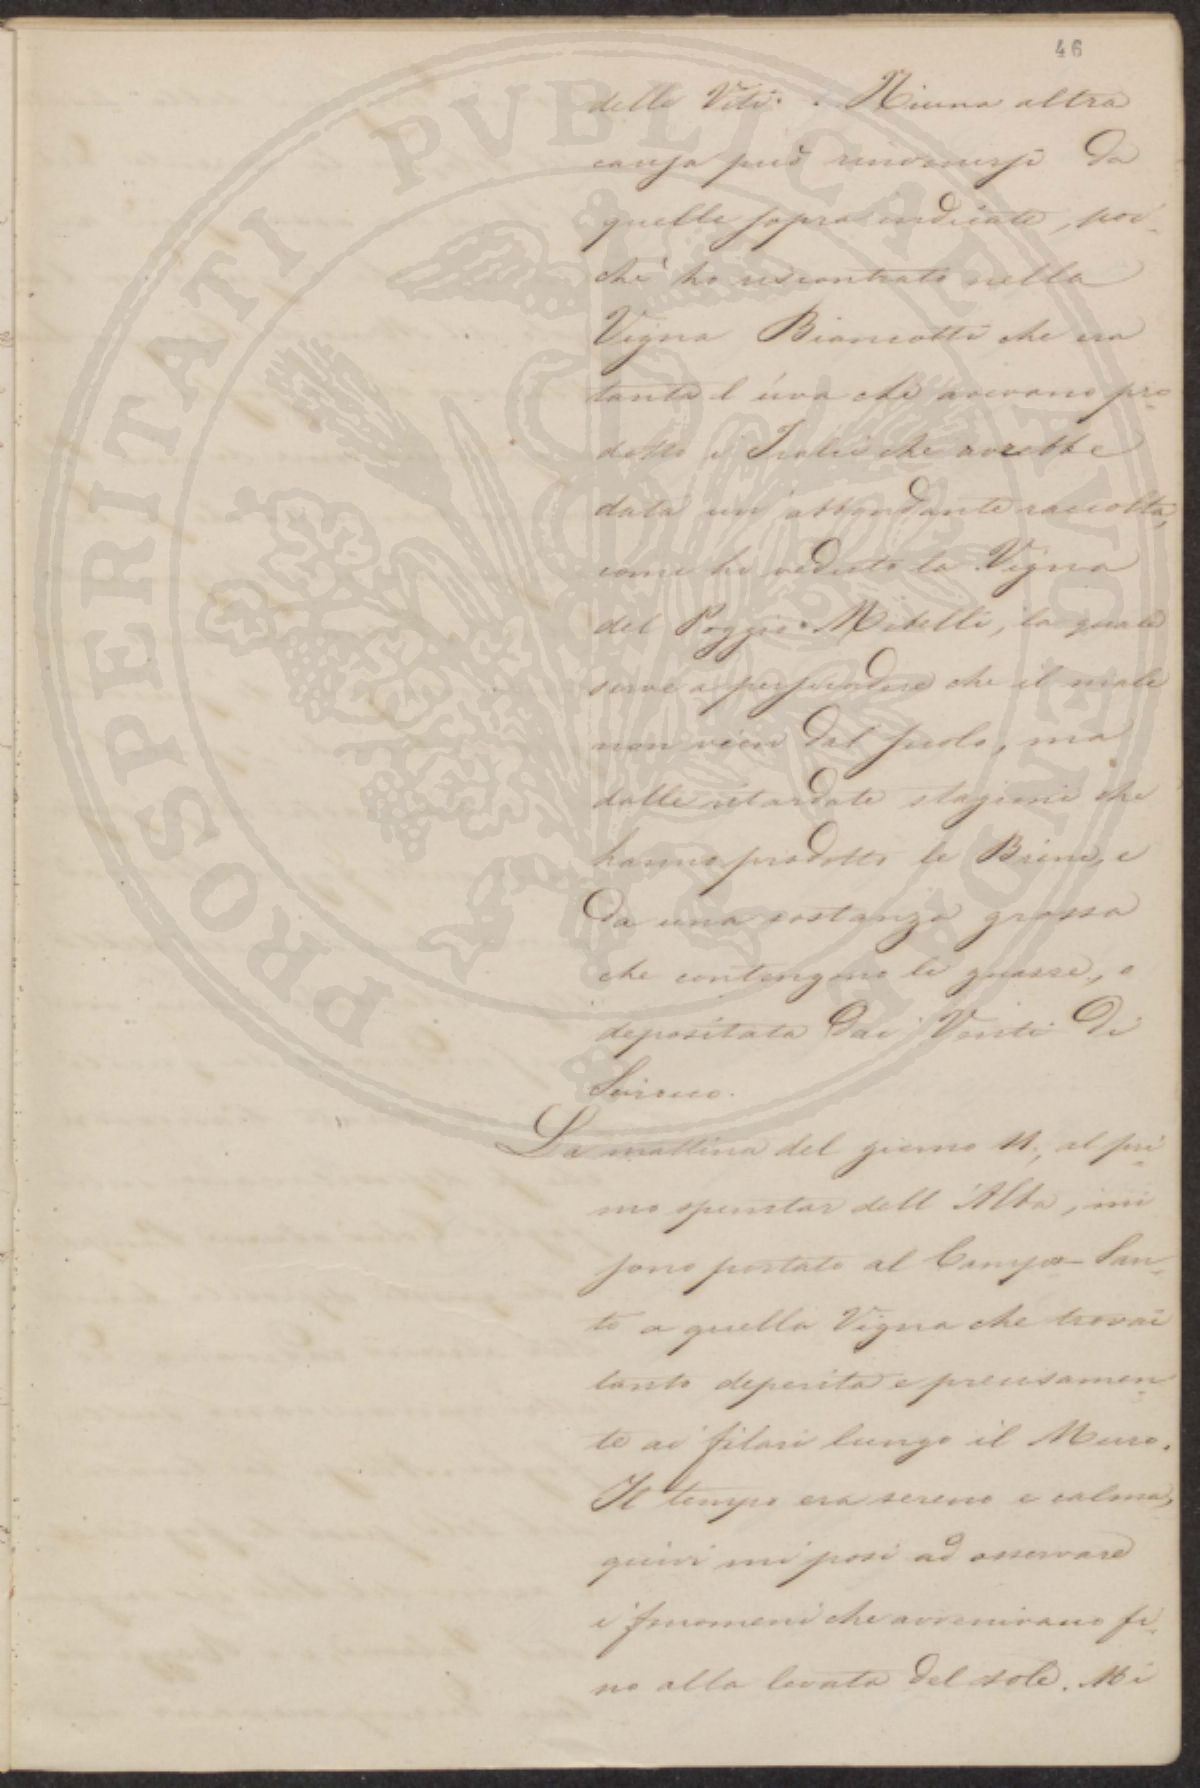 46
delle Viti. Niuna altra
causa può rinvenirsi da
quelle sopra indicate, poi-
chè ho riscontrato nella
Vigna Biancotti che era
tanta l'uva che avevano pro-
dotto i Tralci che avrebbe
data un'abbondante raccolta,
come ho veduto la Vigna
del Poggio Mibelli, la quale
serve a persuadere che il male
non vien dal suolo, ma
dalle ritardate stagioni che
hanno prodotto le Brine, e
da una sostanza grassa
che contengono le guazze, o
depositata dai Venti di
Scirocco.
La mattina del giorno 11, al pri-
mo spuntar dell'Alba, mi
sono portato al Campo-San-
to a quella Vigna che trovai
tanto deperita e precisamen-
te ai filari lungo il Muro.
Il tempo era sereno e calma,
quivi mi posi ad osservare
i fenomeni che avvenivano fi-
no alla levata del sole. Mi
PROSPERITATI PVBLICAE AVGENDAE